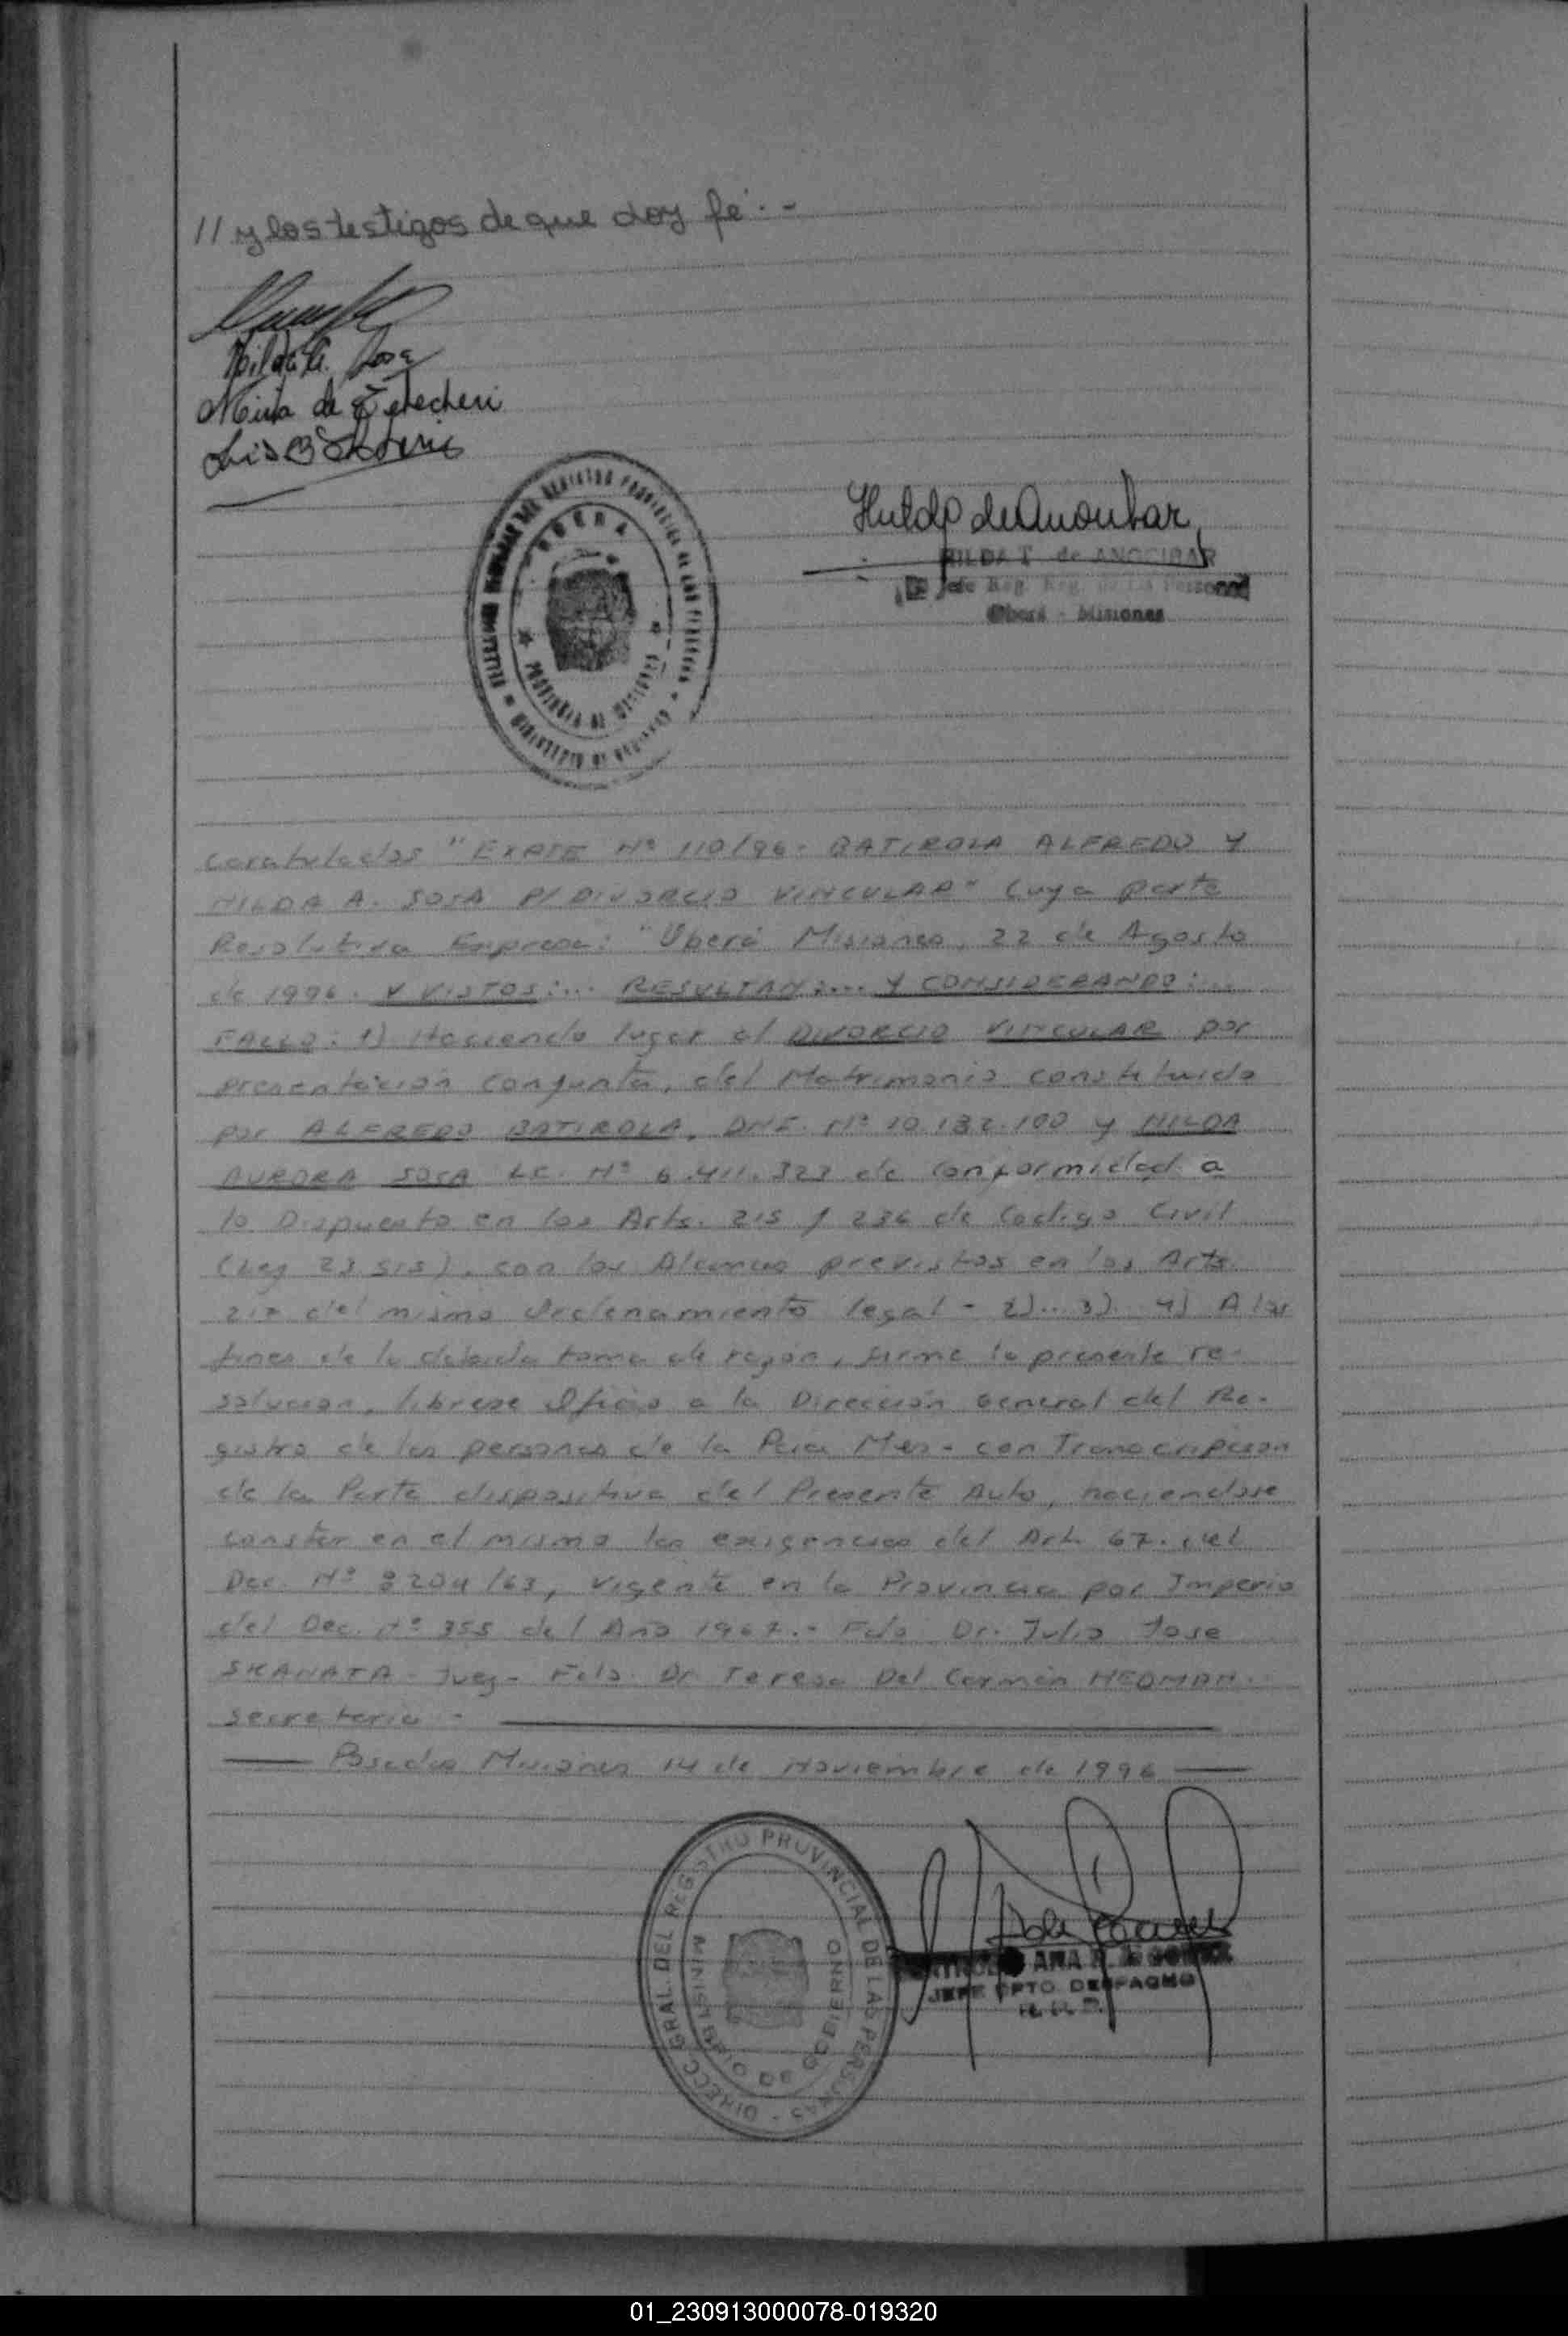 // y los testigos de que doy fe.-
Hilda A. Sosa
Mirta de
HILDA T. de ANOCIBAR
Jefe Reg. de las Personas
Oberá - Misiones
OBERA
PROVINCIA DE MISIONES
caratulados "EXPTE Nº 110/96. BATIROLA ALFREDO Y
HILDA A. SOSA P/ DIVORCIO VINCULAR" Cuya parte
Resolutiva Expresa: "Oberá Misiones, 22 de Agosto
de 1996. Y VISTOS:... RESULTAN:... Y CONSIDERANDO:...
FALLO: 1) Haciendo lugar al DIVORCIO VINCULAR por
presentación conjunta, del Matrimonio constituido
por ALFREDO BATIROLA, DNI. Nº 10.132.100 y HILDA
AURORA SOSA LC. Nº 6.411.323 de Conformidad a
lo Dispuesto en los Arts. 215 y 236 de Codigo Civil
(Ley 23.515), con los Alcances previstos en los Arts.
217 del mismo Ordenamiento legal - 2)... 3).. 4) A los
fines de la debida toma de razón, firme la presente re-
solucion, librese Oficio a la Dirección General del Re-
gistro de las personas de la Pcia Mnes - con Transcripcion
de la Parte dispositiva del Presente Auto, haciendose
constar en el mismo las exigencias del Art. 67. del
Dec. Nº 8204/63, Vigente en la Provincia por Imperio
del Dec. Nº 355 del Año 1967.- Fdo Dr. Julio Jose
SKANATA - Juez - Fdo. Dr Teresa Del Carmen HEDMAN.
Secretaria -
Posadas Misiones 14 de Noviembre de 1996
DIRECC. GRAL. DEL REGISTRO PROVINCIAL DE LAS PERSONAS -
MINISTERIO DE GOBIERNO
JEFE DPTO DESPACHO
01_230913000078-019320